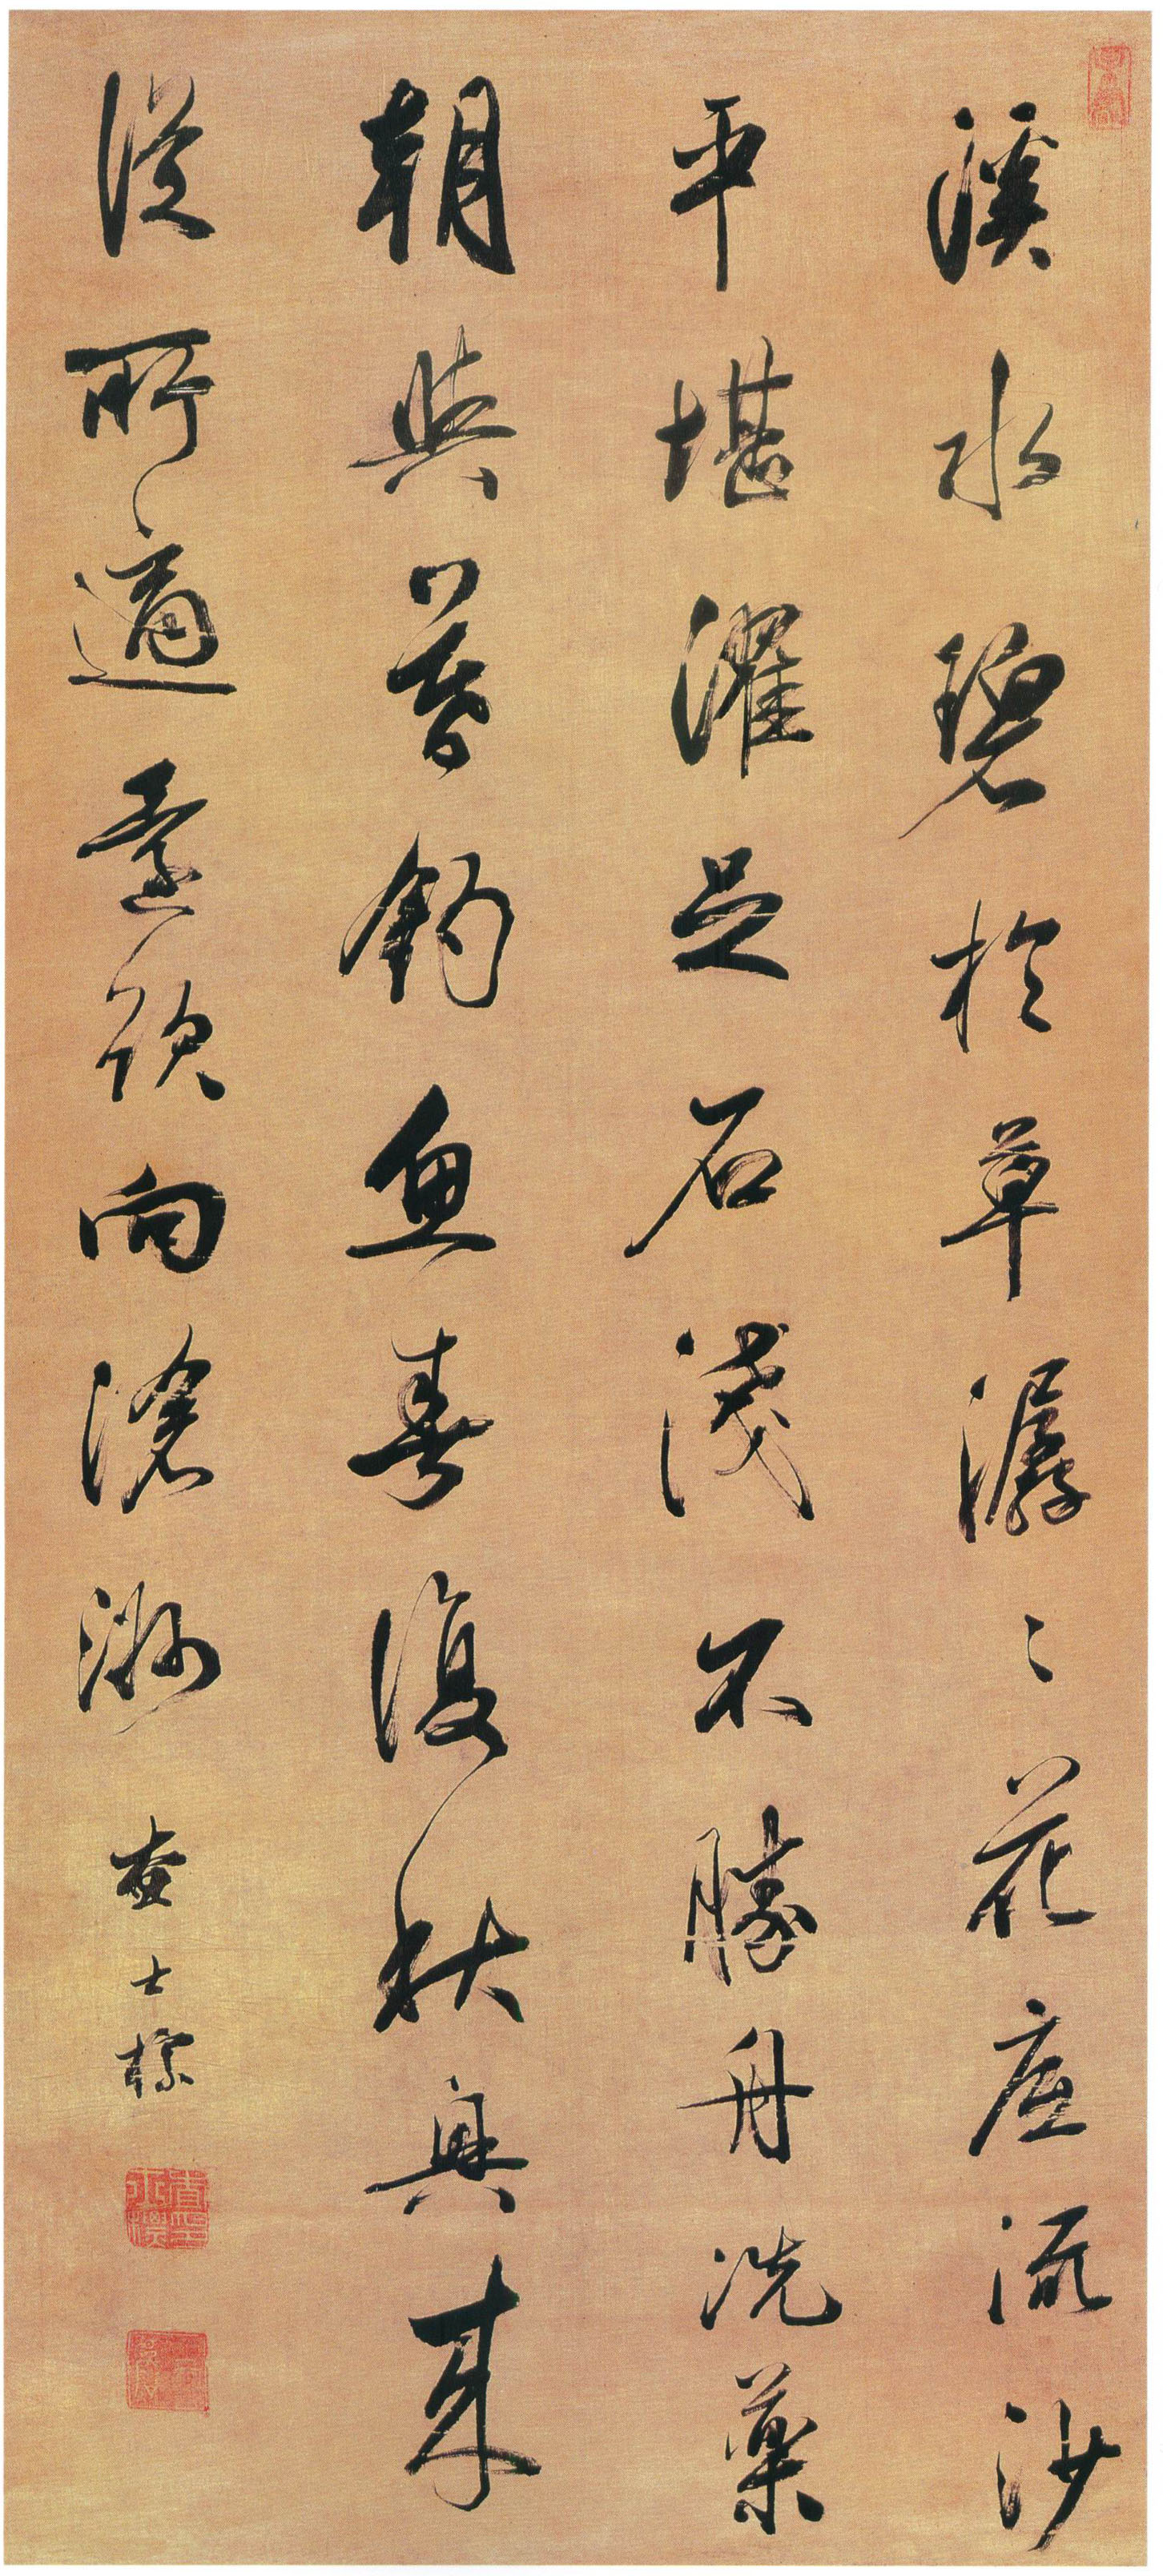 溪水碧於草潺〻花底流沙
平堪濯足石淺不勝舟洗藥
朝與暮釣魚春復秋興來
從所適還欲向滄洲
查士標